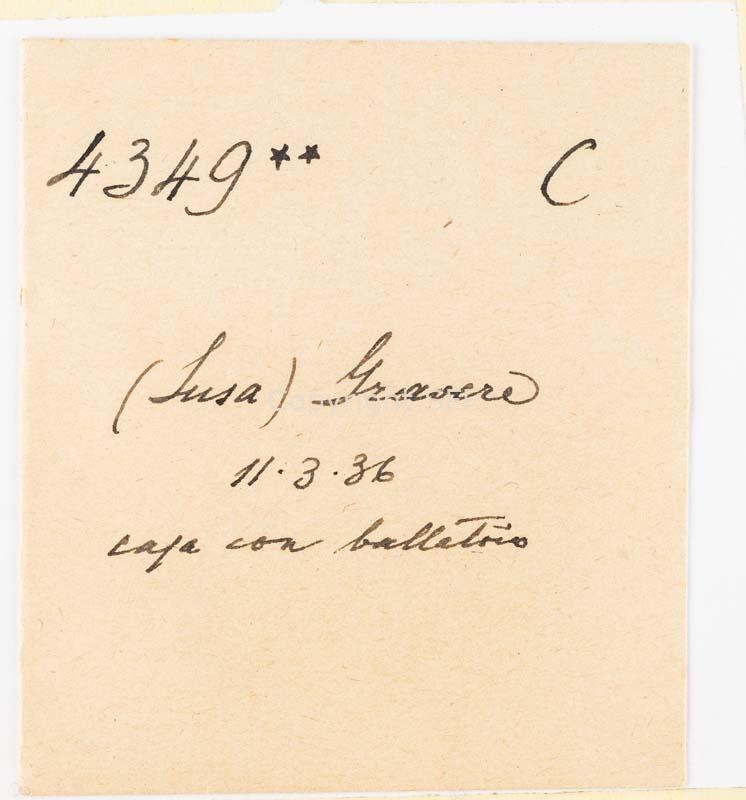 4349** C
(Susa) Gravere
11.3.36
casa con ballatoio